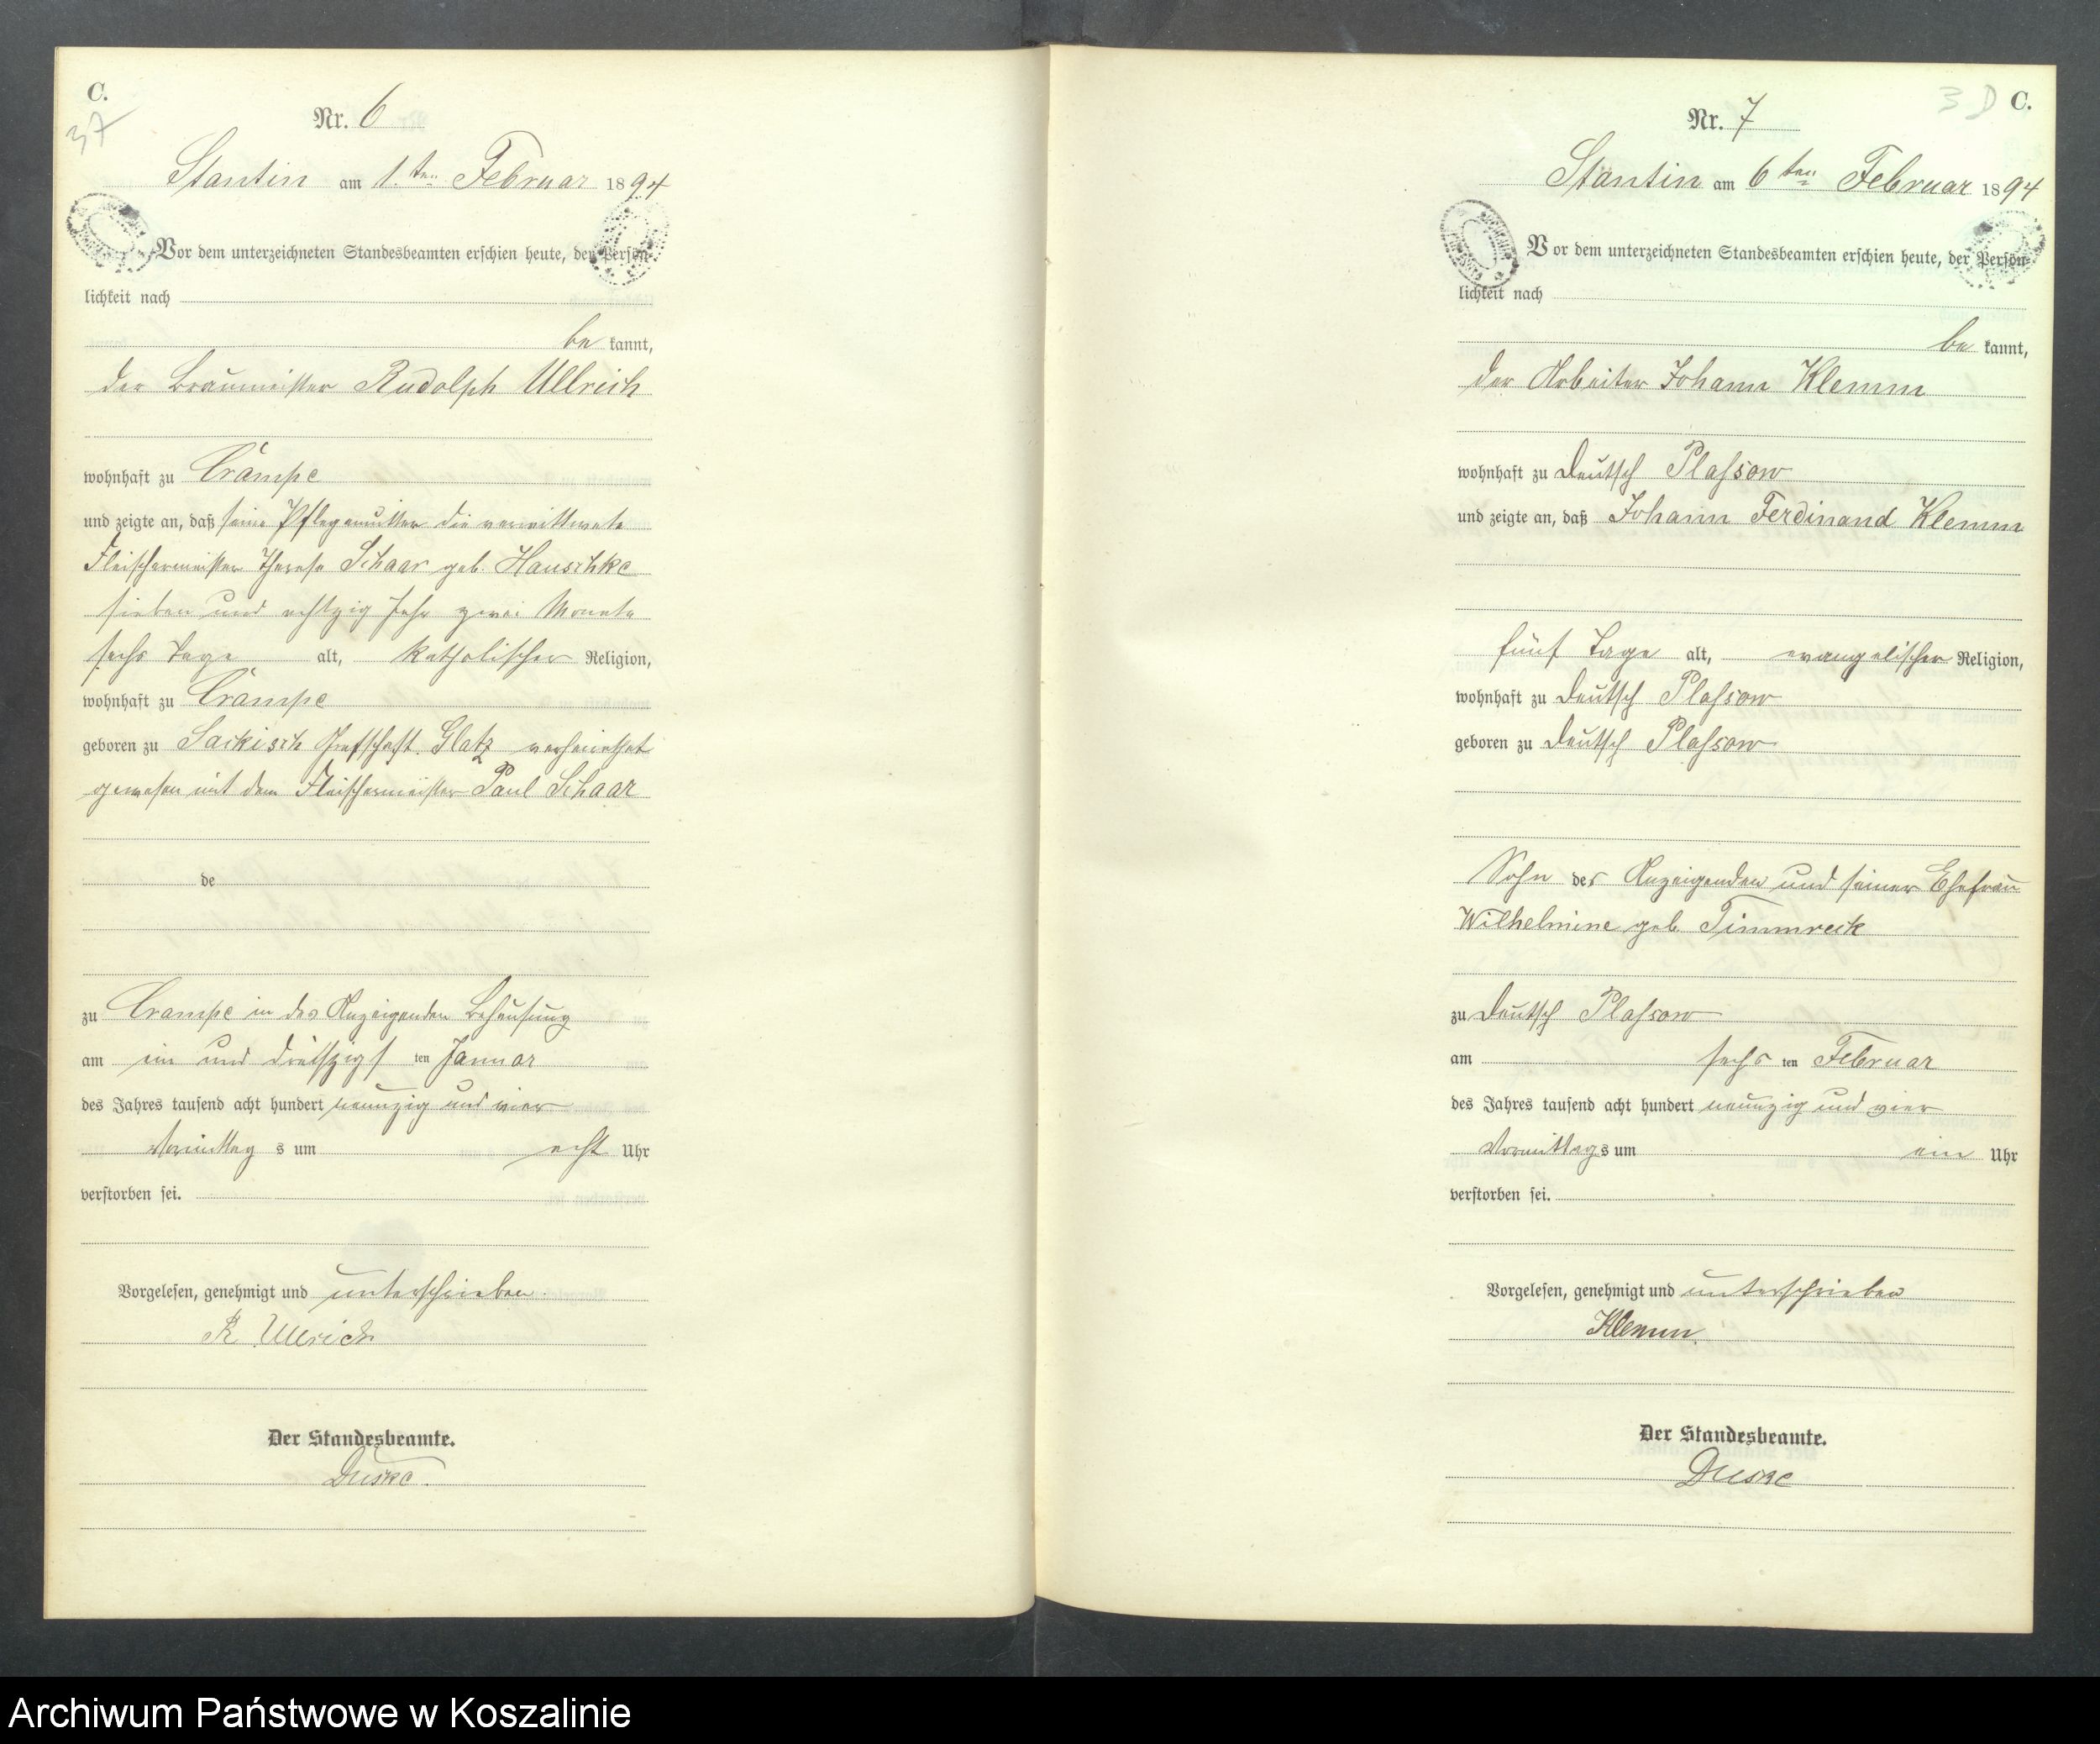 C.
37
Nr. 6
Stantin am 1. ten Februar 1894
Vor dem unterzeichneten Standesbeamten erschien heute, der Persön-
lichkeit nach
be kannt,
der Braumeister Rudolph Ullrich
wohnhaft zu Crampe
und zeigte an, daß seine Pflegemutter die verwittwete
Fleischermeister Therese Schaar geb. Hauschke
sieben und achtzig Jahr zwei Monate
sechs Tage alt, katholischer Religion,
wohnhaft zu Crampe
geboren zu Sackisch Grafschaft Glatz verheirathet
gewesen mit dem Fleischermeister Paul Schaar
de
zu Crampe in des Anzeigenden Behausung
am ein und dreißigsten Januar
des Jahres tausend acht hundert neunzig und vier
Vormittag s um acht Uhr
verstorben sei.
Vorgelesen, genehmigt und unterschrieben
R. Ullrich
Der Standesbeamte.
C.
Nr. 7
Stantin am 6 ten Februar 1894
Vor dem unterzeichneten Standesbeamten erschien heute, der Persön-
lichkeit nach
be kannt,
der Arbeiter Johann Klemm
wohnhaft zu Deutsch Plassow
und zeigte an, daß Johann Ferdinand Klemm
fünf Tage alt, evangelischer Religion,
wohnhaft zu Deutsch Plassow
geboren zu Deutsch Plassow
Sohn des Anzeigenden und seiner Ehefrau
Wilhelmine geb. Timmreck
zu Deutsch Plassow
am sechs ten Februar
des Jahres tausend acht hundert neunzig und vier
Vormittags um ein Uhr
verstorben sei.
Vorgelesen, genehmigt und unterschrieben
Klemm.
Der Standesbeamte.
Archiwum Państwowe w Koszalinie